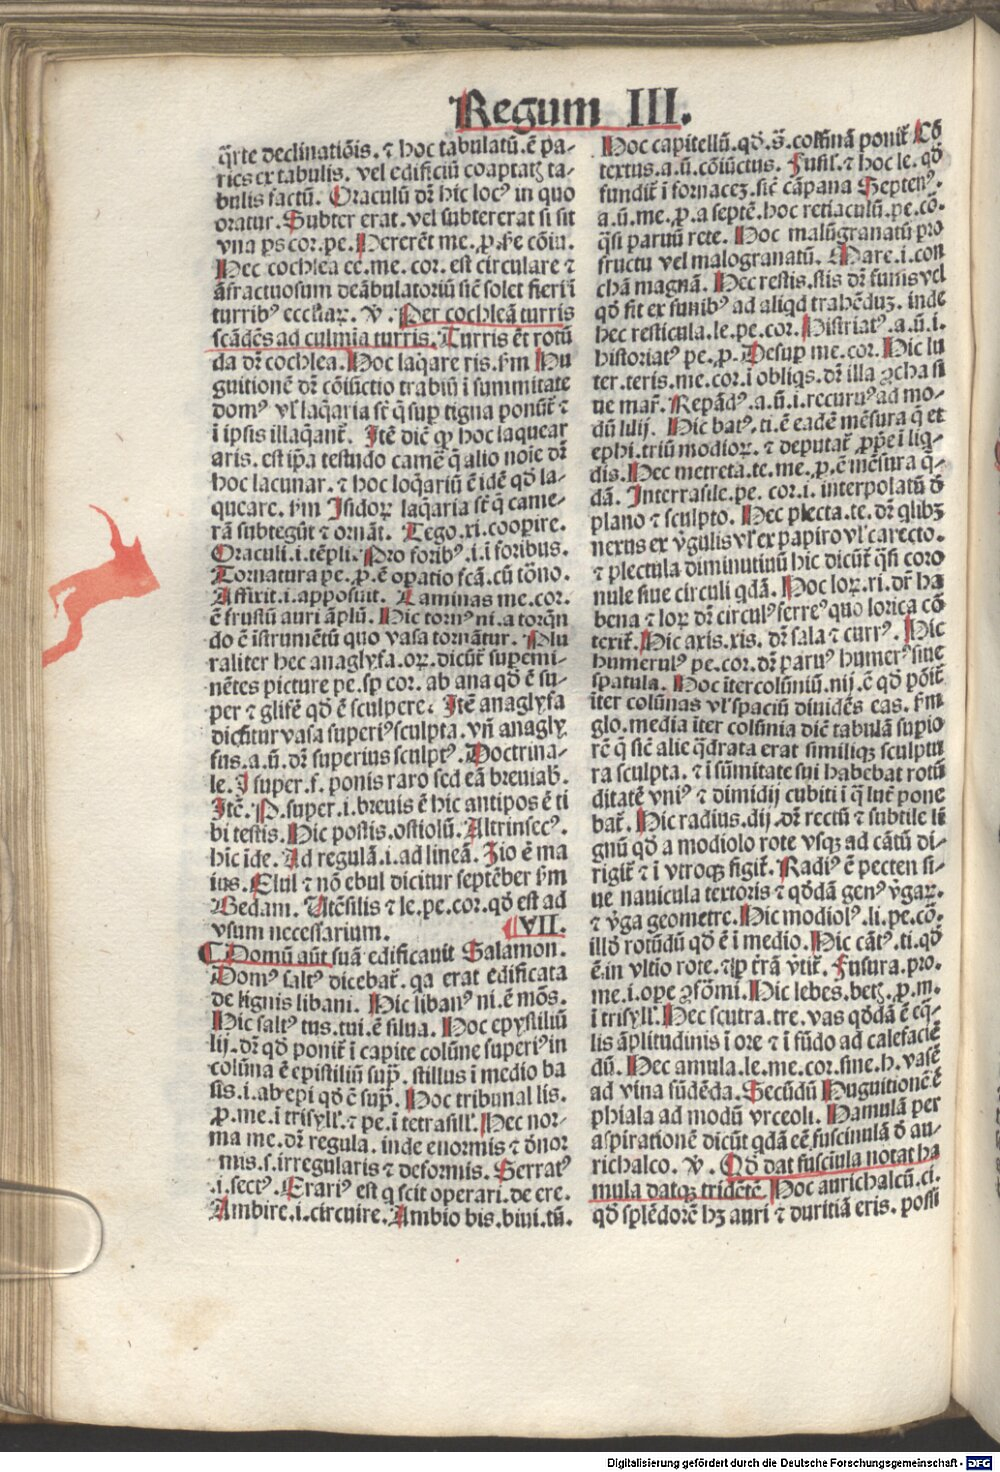 Regum III.
q̄rte declinatiōis. ⁊ hoc tabulatū. ē pa-
ries ex tabulis. vel edificiū coaptatꝫ ta-
bulis factū. Oraculū dr̄ hic locꝰ in quo
oratur. Subter erat. vel subtererat si sit
vna ps cor. pe. Pererēt me. p̱. fe cōiu.
Hec cochlea ee. me. cor. est circulare ⁊
āfractuosum deābulatoriū sic̄ solet fieri ī
turribꝰ eccl̄iaꝝ. v̄. Per cochleā turris
scādēs ad culmīa turris. Turris ēt rotū
da dr̄ cochlea. Hoc laq̄are ris. s̄m Hu
guitionē dr̄ cōiūctio trabiū ī summitate
domꝰ vl̄ laq̄aria sr̄t q̄ sup̱ tigna ponūt̄ ⁊
ī ipsis illaq̄ant̄. Itē dic̄t ꝙ hoc laquear
aris. est ip̄a testudo camē q̄ alio noīe dr̄
hoc lacunar. ⁊ hoc loq̄ariū ē idē qd̄ la-
queare. s̄m Isidoꝝ laq̄aria sr̄t q̄ came-
rā subtegūt ⁊ ornāt. Tego. xi. coopire.
Oraculi. i. tēpli. Pro foribꝰ. i. ī foribus.
Tornatura pe. p̱. ē opatio fcā. cū tōno.
Affixit. i. apposuit. Laminas me. cor.
ē frustū auri āplū. Hic tornꝰ ni. a torq̄n
do ē īstrumētū quo vasa tornātur. Plu
raliter hec anaglyfa. oꝝ. dicūt̄ sup̱emi-
nētes picture pe. sp̱ cor. ab ana qd̄ ē su-
per ⁊ glifē qd̄ ē sculpere. Itē anaglyfa
dicūtur vasa superiꝰ sculpta. vn̄ anagly
fus. a. ū. dr̄ superius sculptꝰ. Doctrina-
le. I super. f. ponis raro sed eā breuiab̄.
Itē. P. super. i. breuis ē hic antipos ē ti
bi testis. Hic postis. ostiolū. Altrinsecꝰ.
hic īde. Ad regulā. i. ad lineā. Iio ē ma
ius. Elul ⁊ nō ebul dicitur septēber s̄m
Bedam. Utēsilis ⁊ le. pe. cor. qd̄ est ad
vsum necessarium. VII.
Domū aūt suā edificauit Salamon.
Domꝰ saltꝰ dicebat̄. qa erat edificata
de lignis libani. Hic libanꝰ ni. ē mōs.
Hic saltꝰ tus. tui. ē silua. Hoc epystiliū
lij. dr̄ qd̄ ponit̄ ī capite colūne superiꝰ in
colūna ē epistiliū sup̱. stillus ī medio ba
sis. i. ab epi qd̄ ē sup̱. Hoc tribunal lis.
p̱. me. ī trisyll̄. ⁊ pe. ī tetrasill̄. Hec nor-
ma me. dr̄ regula. inde enormis ⁊ d̄nor
mis. s. irregularis ⁊ deformis. Serratꝰ
.i. sectꝰ. Erariꝰ est q scit operari. de ere.
Ambire. i. circuire. Ambio bis. biui. tū.
Hoc capitellū. qd̄. s̄. colūnā ponit̄ Cō
textus. a. ū. cōiūctus. Fusil̄. ⁊ hoc le. qd̄
fundit̄ ī fornaceꝫ. sic̄ cāpana Septenꝰ.
a. ū. me. p̱. a septē. hoc retiaculū. pe. cō.
q̄si paruū rete. Hoc malūgranatū pro
fructu vel malogranatū. Mare. i. con
chā magnā. Hec restis. stis dr̄ funis vel
qd̄ fit ex funibꝰ ad aliqd trahēduꝫ. inde
hec resticula. le. pe. cor. Histriatꝰ. a. ū. i.
historiatꝰ pe. p̱. Desup̱ me. cor. Hic lu
ter. teris. me. cor. i obliqs. dr̄ illa ꝯcha si
ue mar̄. Repādꝰ. a. ū. i. recuruꝰ ad mo-
dū lilij. Hic batꝰ. ti. ē eadē mēsura q̄ et
ephi. triū modioꝝ. ⁊ deputat̄ p̱p̱e ī liq-
dis. Hec metreta. te. me. p̱. ē mēsura q̄-
dā. Interrasile. pe. cor. i. interpolatū d̄
plano ⁊ sculpto. Hec plecta. te. dr̄ qlibꝫ
nexus ex v̄gulis vl̄ ex papiro vl̄ carecto.
⁊ plectula diminutiuū hic dicūt̄ q̄si coro
nule siue circuli qdā. Hoc loꝝ. ri. dr̄ ha
bena ⁊ loꝝ dr̄ circulꝰ ferreꝰ quo lorica cō
texit̄. Hic axis. xis. dr̄ sala ⁊ currꝰ. Hic
humerulꝰ pe. cor. dr̄ paruꝰ humerꝰ siue
spatula. Hoc ītercolūniū. nij. ē qd̄ pōit̄
īter colūnas vl̄ spaciū diuidēs eas. s̄m
glo. media īter colūnia dic̄t tabulā sup̱io
rē q̄ sic̄ alie q̄drata erat similiqꝫ sculptu
ra sculpta. ⁊ ī sūmitate sui habebat rotū
ditatē vniꝰ ⁊ dimidij cubiti ī q̄ lut̄ pone
bat̄. Hic radius. dij. dr̄ rectū ⁊ subtile li
gnū qd̄ a modiolo rote vsqꝫ ad cātū di-
rigit̄ ⁊ ī vtroqꝫ figit̄. Radiꝰ ē pecten si-
ue nauicula textoris ⁊ qd̄dā genꝰ v̄gaꝝ.
⁊ v̄ga geometre. Hic modiolꝰ. li. pe. cō.
illd̄ rotūdū qd̄ ē ī medio. Hic cātꝰ. ti. qd̄
ē in vltīo rote. ⁊ sp̱ tr̄ā v̄tit̄. Fusura. pro.
me. i. ope ꝯsōmi. Hic lebes. betꝫ. p̱. m.
ī trisyll̄. Hec scutra. tre. vas qd̄dā ē eq̄-
lis āplitudinis ī ore ⁊ ī fūdo ad calefaciē
dū. Hec amula. le. me. cor. sine. h. vasē
ad vina fūdēda. Secūdū Huguitionē ē
phiala ad modū vrceoli. Hamulā per
aspirationē dicūt qdā eē fuscinulā d̄ au-
richalco. v̄. Qd̄ dat fusciula notat ha
mula datqꝫ tridētē. Hoc aurichalcū. ci.
qd̄ splēdorē hꝫ auri ⁊ duritiā eris. possi
Digitalisierung gefördert durch die Deutsche Forschungsgemeinschaft - DFG